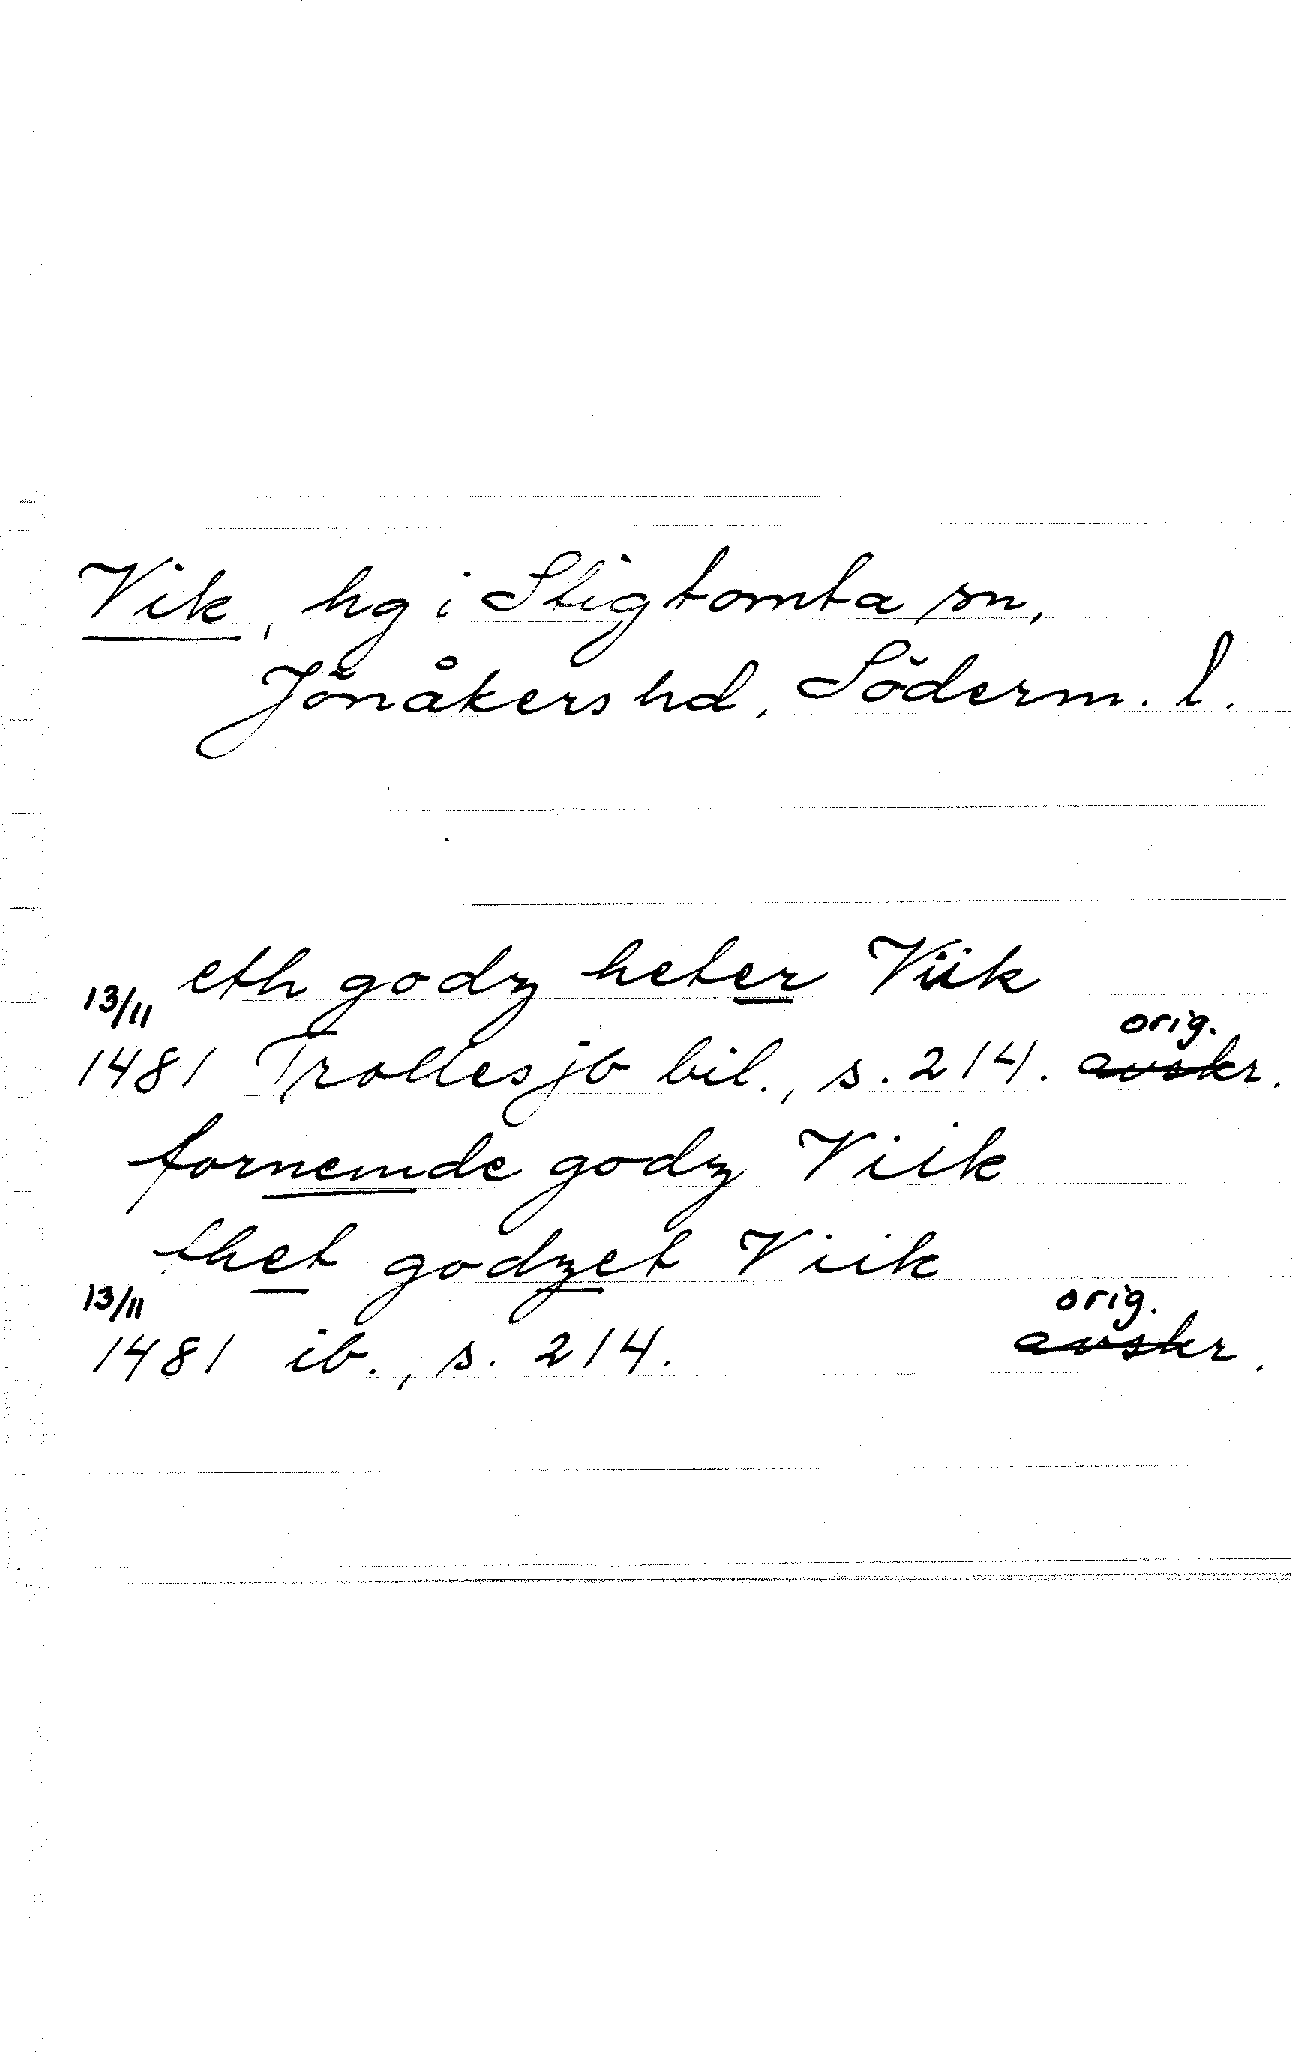 Vik, hg i Stigtomta sn,
Jönåkers hd, Söderm. l.
eth godz heter Viik
13/11
orig.
1481 Trolles jb bil., s. 214. avskr.
fornemde godz Viik
thet godzet Viik
13/11
orig.
1481 ib., s. 214. avskr.